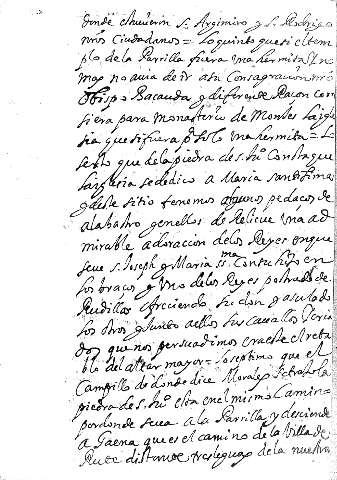 donde estuvieron S. Argimiro y S. Rodrigo
nros Ciudadanos = Lo quinto que si el tem
plo de la Parrilla fuera una hermita
mas no avia de ir a su Consagracion nro
Obispo Bacauda y diferente Raçon con
siera para monasterio de Montes la igle
sia que si fuera solo una hermita = Lo
sexto que de la piedra de
la iglesia se dedico a Maria santissima
y de este sitio tenemos algunos pedaços de
alabastro y en ellos de Relieve una ad
mirable adoracion de los Reyes en que
se ve S. Joseph y Maria SSma con su hijo en
los braços y uno de los Reyes postrado de
Rudillas ofreciendo su don y a su lado
los otros y junto a ellos sus cavallos
dos que nos persuadimos era este el reta
blo del altar mayor = Lo septimo que el
Campillo de donde dice Morales se trajo la
piedra de esta en el mismo Camin
por donde se va a la Parrilla y desciende
a Gaena que es el camino de la Villa de
Rute distante tres leguas de la nuestra